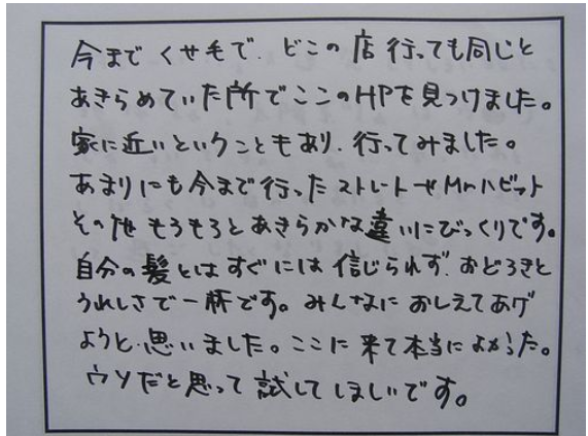 今までくせ毛で、どこの店行っても同じと
あきらめていた所でここのHPを見つけました。
家に近いということもあり、行ってみました。
あまりにも今まで行ったストレートやMrハビット
その他もろもろとあきらかな違いにびっくりです。
自分の髪とはすぐには信じられず、おどろきと
うれしさで一杯です。みんなにおしえてあげ
ようと思いました。ここに来て本当によかった。
ウソだと思って試してほしいです。